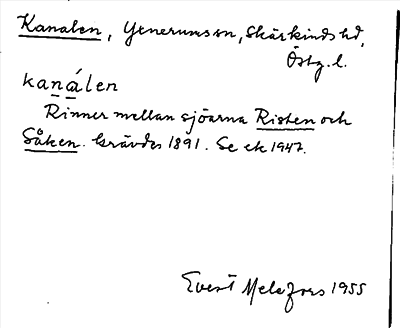 Kanalen, Yxnerums sn, Skärkinds hd,
Östg. l.
kanálen
Rinner mellan sjöarna Risten och
Såken. Grävdes 1891. Se ek 1947.
Evert Melefors 1955